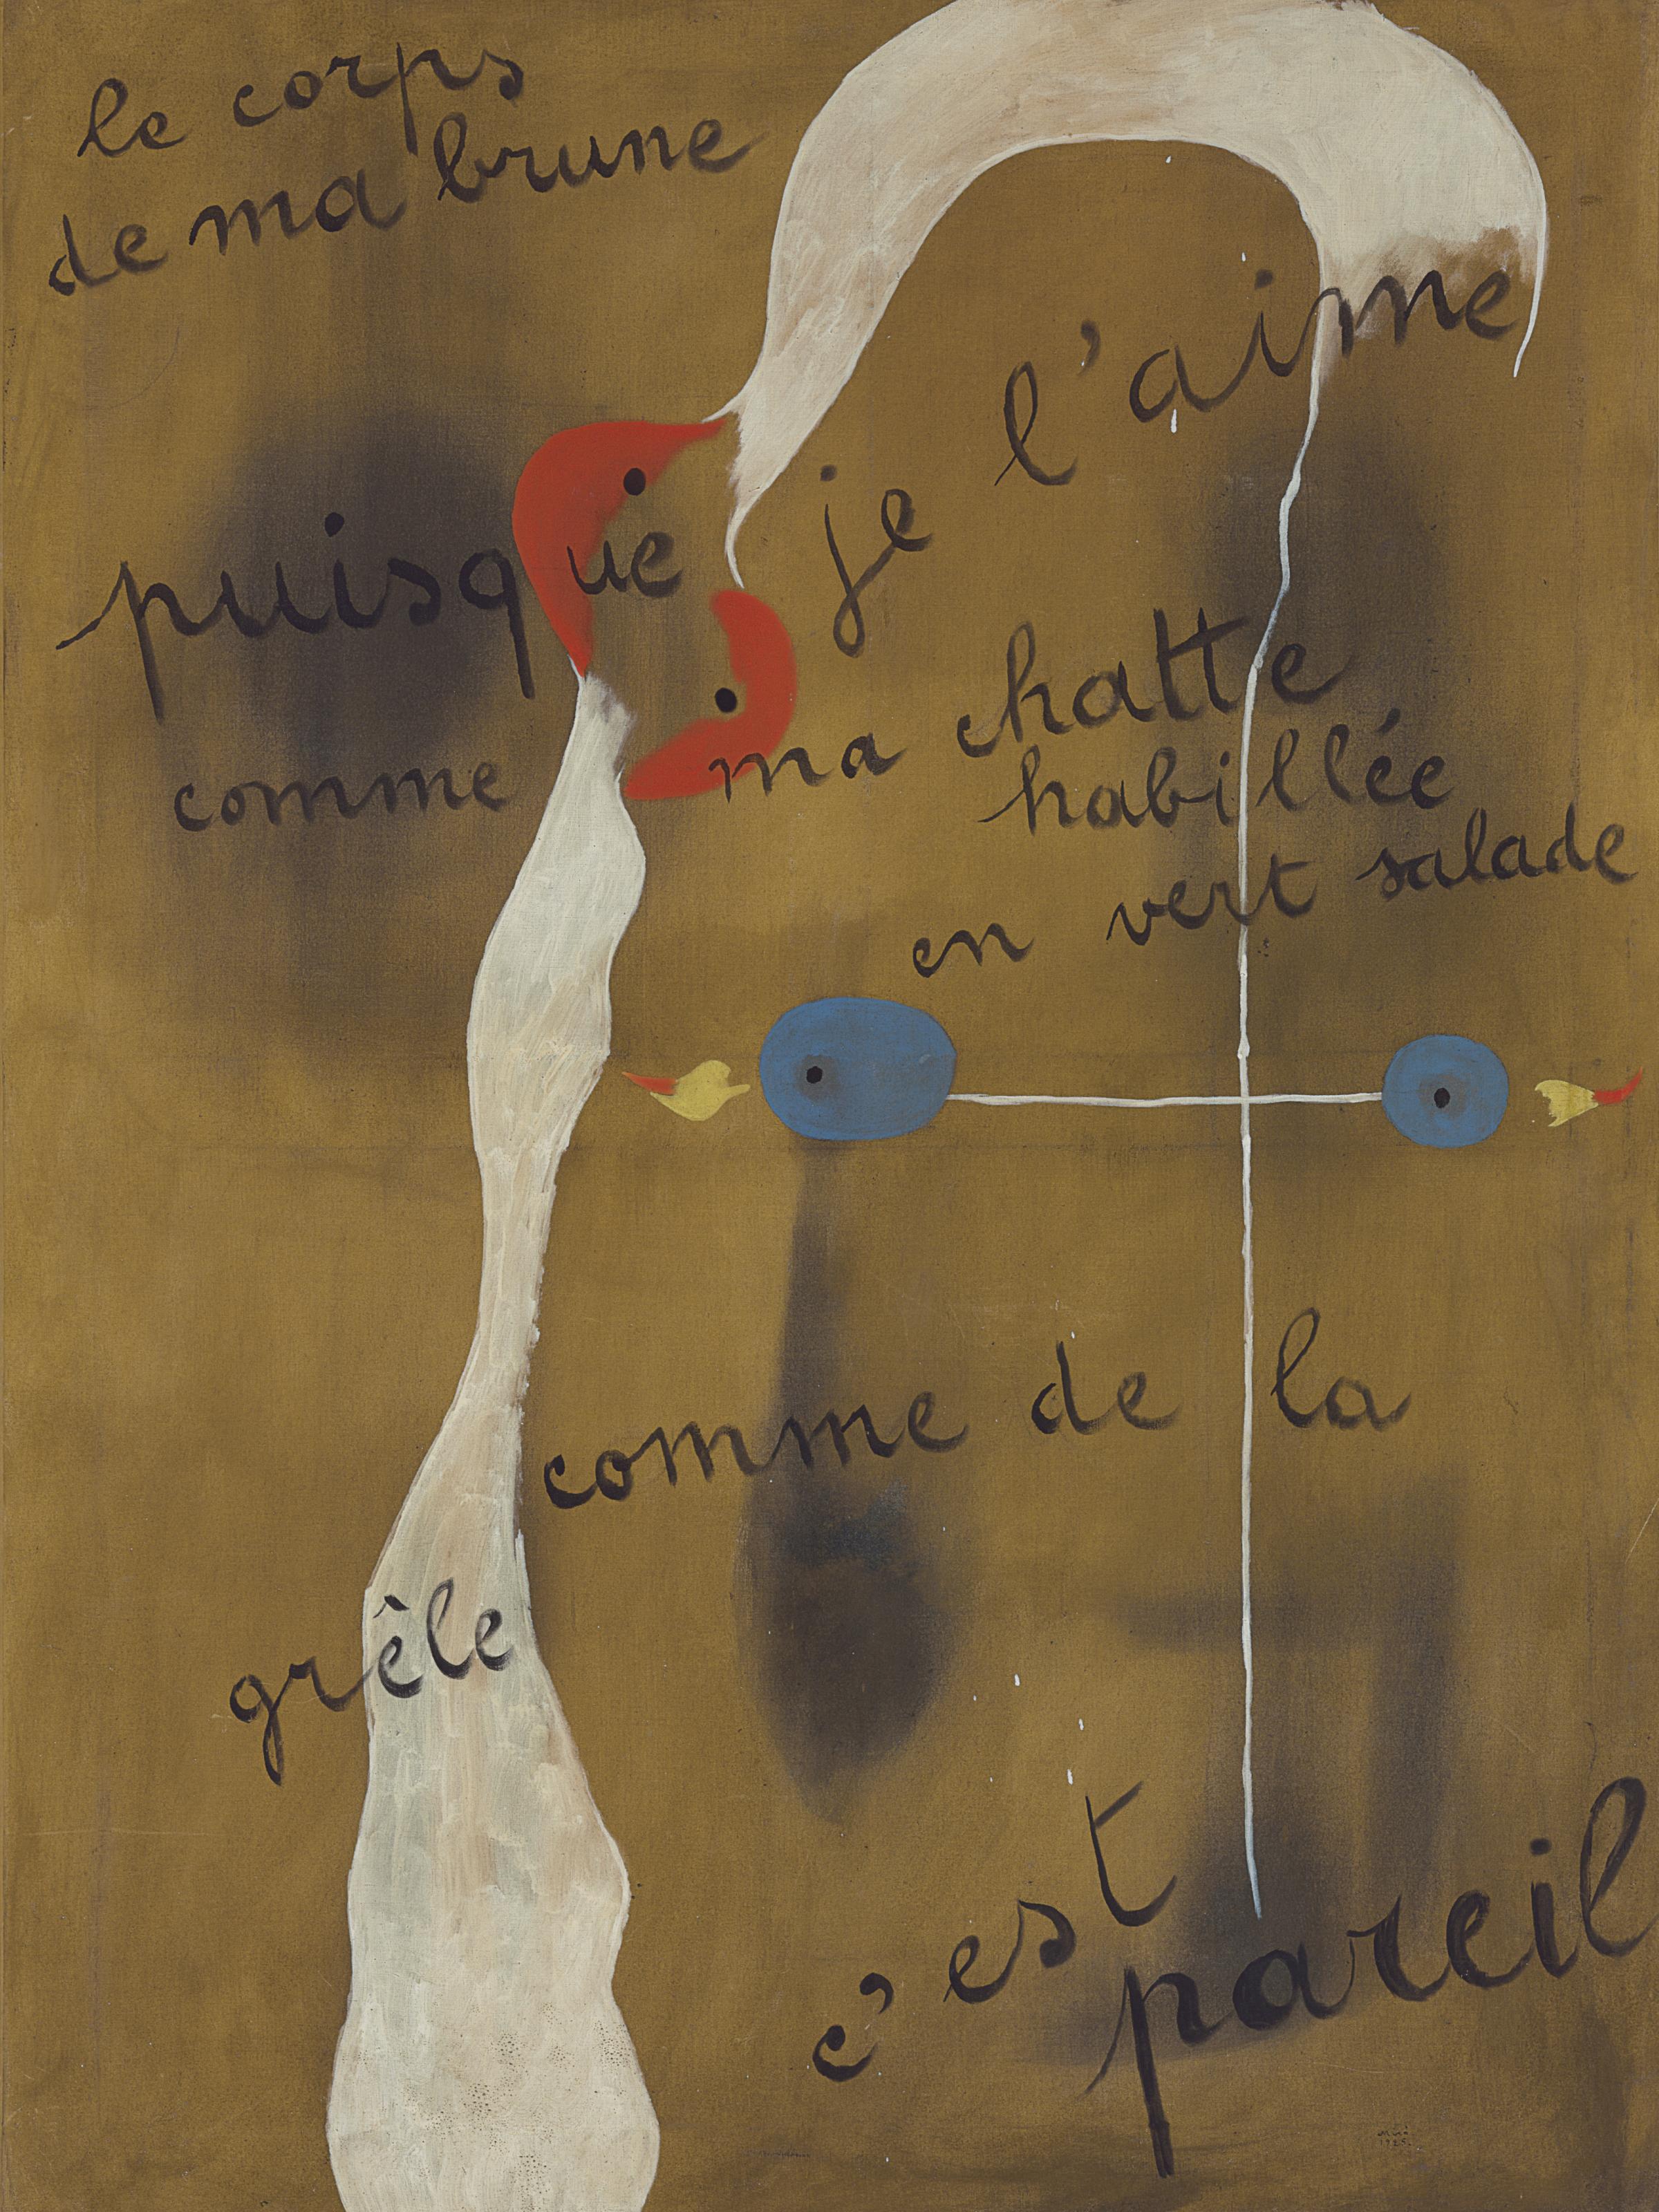 le corps
de ma brune
puisque je l'aime
comme ma chatte
habillée
en vert salade
comme de la
grêle
c'est
pareil
Miró
1925.